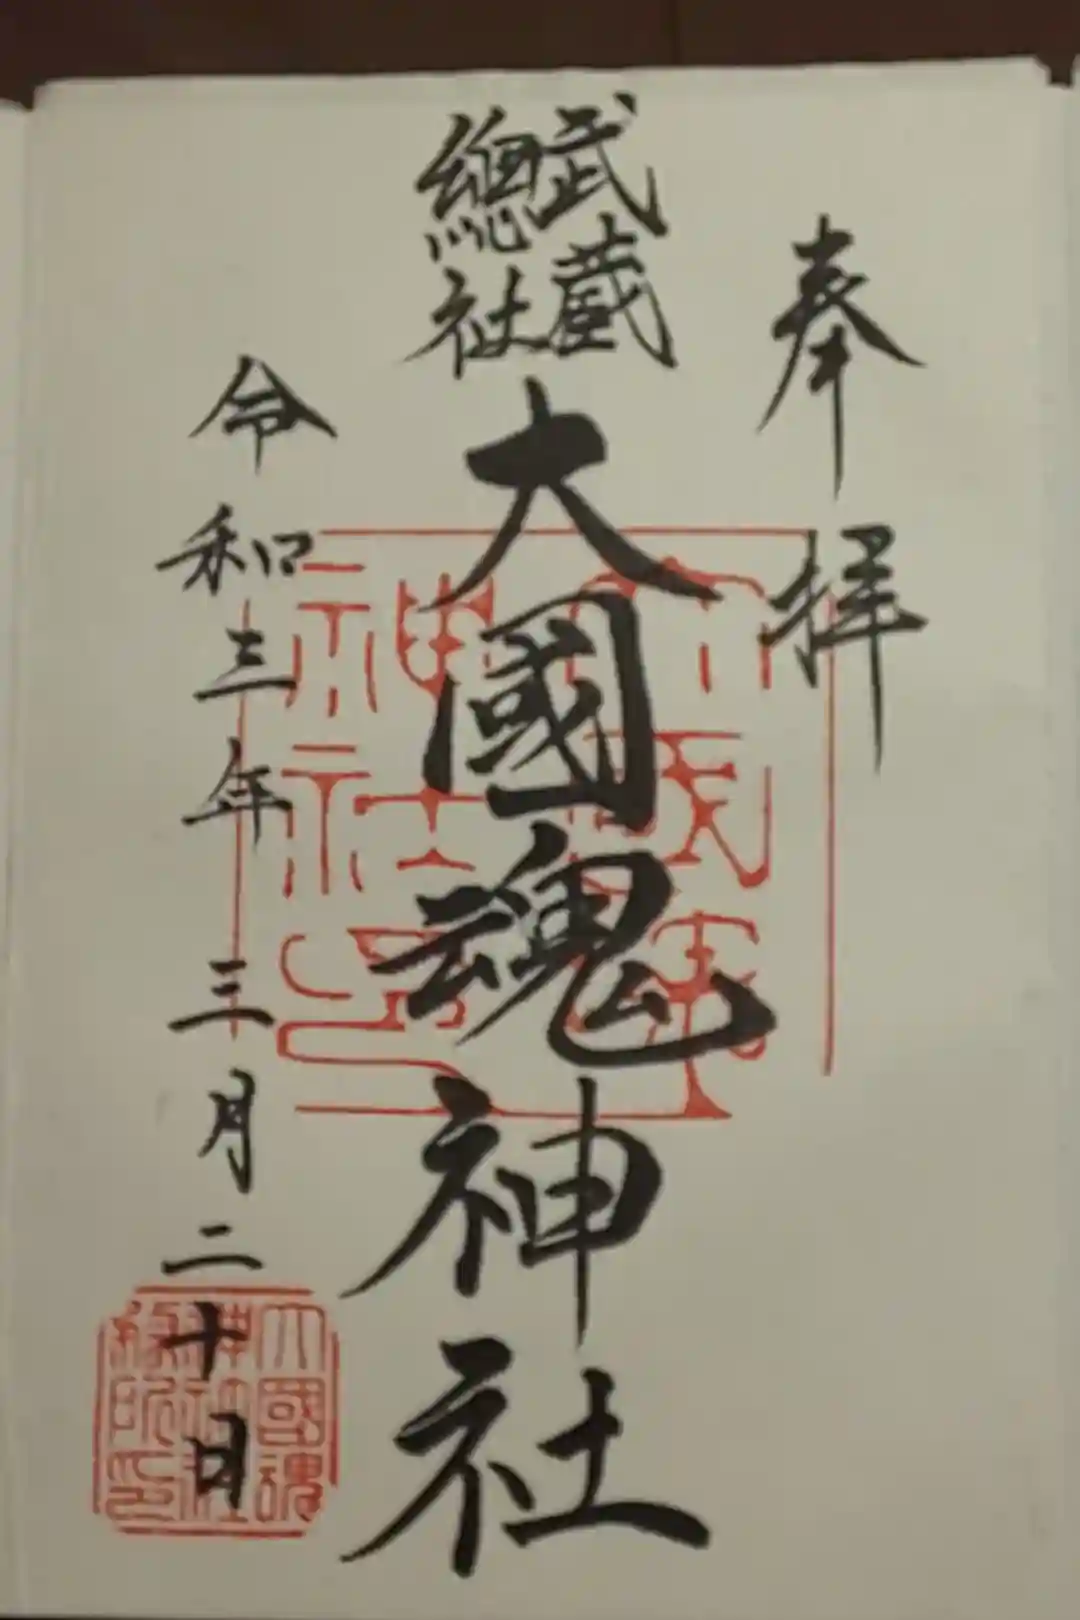 奉拝
武蔵
總社
大國魂神社
令和三年三月二十日
大國魂
神社